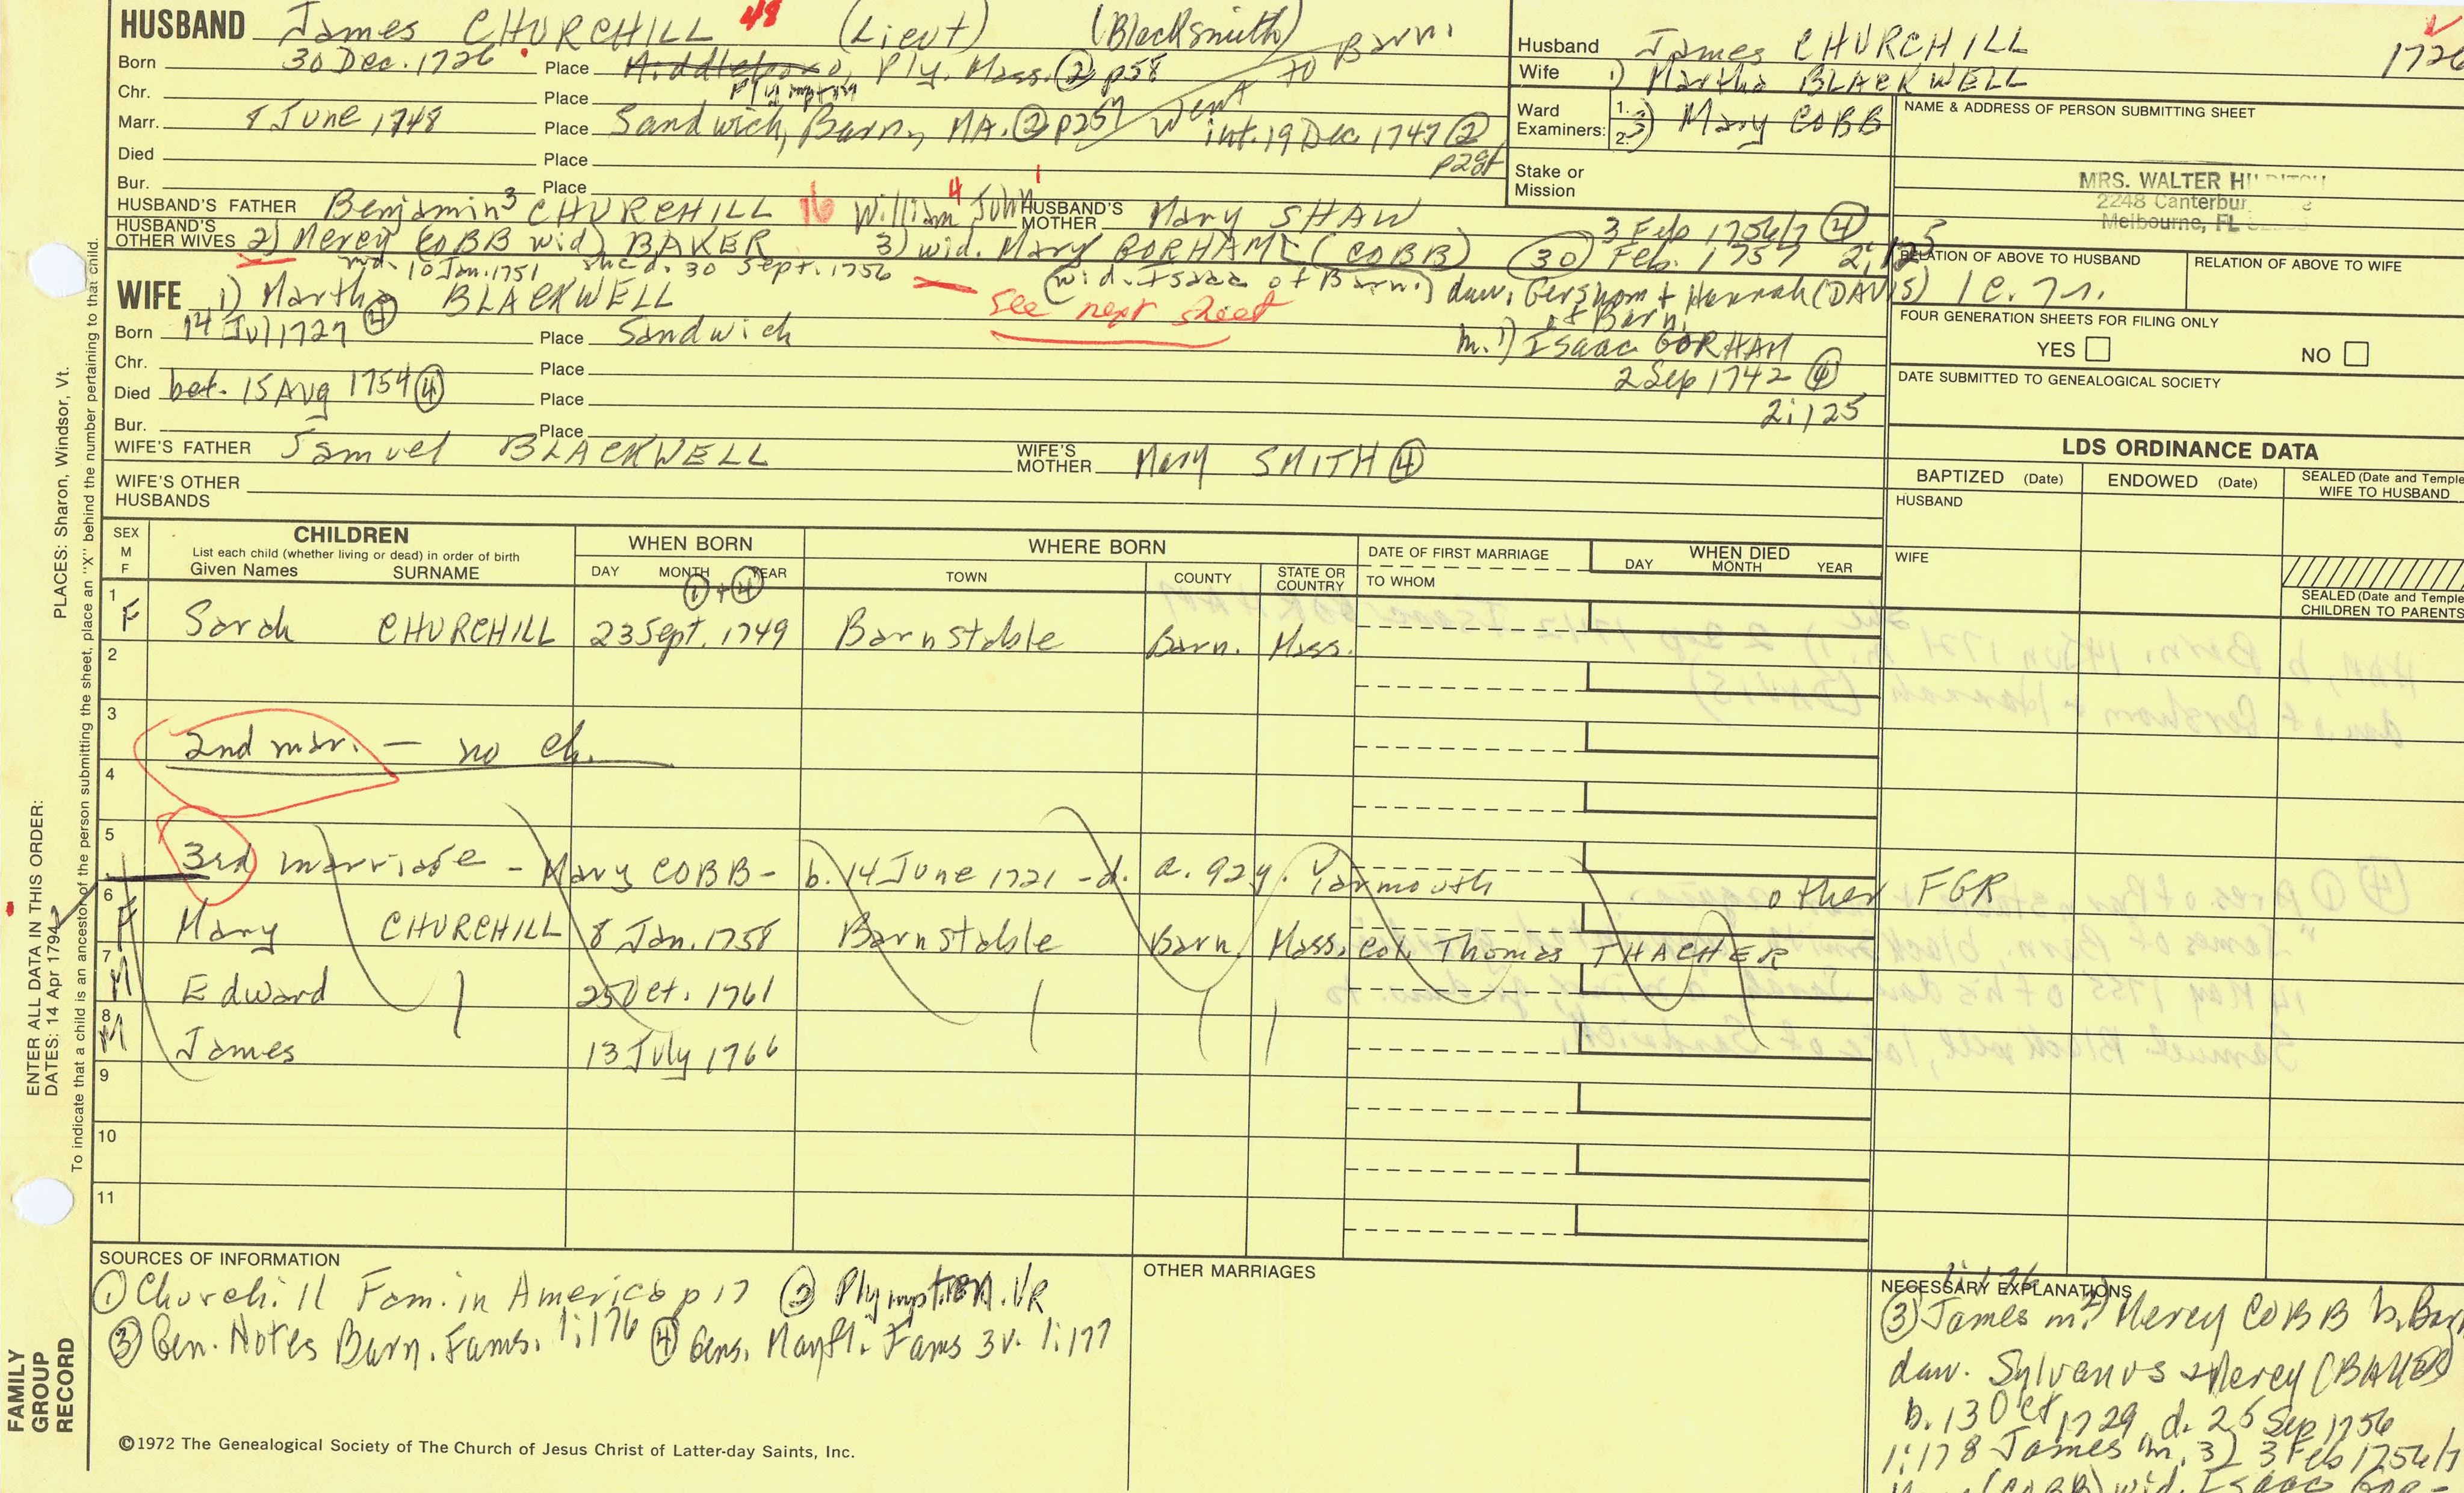 HUSBAND James CHURCHILL 48 (Lieut) (Blacksmith)
Born 30 Dec. 1726 Place Middleboro, Ply. Mass. ② p58 went to Barn.
Plympton
Chr. Place
Marr. 8 June 1748 Place Sandwich, Barn, MA. ② p257 int. 19 Dec 1747 ②
Died Place
Bur. Place
HUSBAND'S FATHER Benjamin³ CHURCHILL 16 William John HUSBAND'S MOTHER Mary SHAW
4 1
HUSBAND'S OTHER WIVES 2) Mercy COBB wid) BAKER 3) wid. Mary GORHAM (COBB) 3 Feb 1756/7 ④
md. 10 Jan. 1751 she d. 30 Sept. 1756 (wid. Isaac of Barn.) (30) Feb. 1757 2:125
see next sheet
daw. Gershom + Hannah (DAVIS)
of Barn.
m. 1) Isaac GORHAM
2 Sep 1742 ④
2:125
WIFE 1) Martha BLACKWELL
Born 14 Jul 1727 ④ Place Sandwich
Chr. Place
Died bet. 15 Aug 1754 ④ Place
Bur. Place
WIFE'S FATHER Samuel BLACKWELL WIFE'S MOTHER Mary SMITH ④
WIFE'S OTHER HUSBANDS
Husband James CHURCHILL 1726
Wife 1) Martha BLACKWELL
Ward Examiners: 1. 2. 3) Mary COBB
Stake or Mission
NAME & ADDRESS OF PERSON SUBMITTING SHEET
MRS. WALTER
2248 Canterbur
Melbourne, FL
RELATION OF ABOVE TO HUSBAND RELATION OF ABOVE TO WIFE
1c. 7r.
FOUR GENERATION SHEETS FOR FILING ONLY
YES NO
DATE SUBMITTED TO GENEALOGICAL SOCIETY
LDS ORDINANCE DATA
BAPTIZED (Date) ENDOWED (Date) SEALED (Date and Temple) WIFE TO HUSBAND
HUSBAND
WIFE
SEALED (Date and Temple) CHILDREN TO PARENTS
SEX M F CHILDREN WHEN BORN WHERE BORN DATE OF FIRST MARRIAGE WHEN DIED
List each child (whether living or dead) in order of birth
Given Names SURNAME DAY MONTH YEAR TOWN COUNTY STATE OR COUNTRY TO WHOM DAY MONTH YEAR
① + ④
1 F Sarah CHURCHILL 23 Sept. 1749 Barnstable Barn. Mass.
2
3
2nd mar. — no ch.
4
5
3rd marriage - Mary COBB - b. 14 June 1721 - d. a. 92y. Yarmouth other FGR
6 F Mary CHURCHILL 8 Jan. 1758 Barnstable Barn. Mass. Col. Thomas THACHER
7 M Edward 25 Oct. 1761
8 M James 13 July 1766
9
10
11
SOURCES OF INFORMATION
① Churchill Fam. in America p 17 ② Plympton. VR
③ Gen. Notes Barn. Fams. 1:176 ④ Gens. Mayfl. Fams 3v. 1:177
OTHER MARRIAGES
NECESSARY EXPLANATIONS
③ James m. 2) Mercy COBB b. Barn
daw. Sylvanus + Mercy (BAKER)
b. 13 Oct 1729 d. 25 Sep 1756
1:178 James m. 3) 3 Feb 1756/7
(COBB) wid. Isaac Gor-
©1972 The Genealogical Society of The Church of Jesus Christ of Latter-day Saints, Inc.
FAMILY GROUP RECORD
ENTER ALL DATA IN THIS ORDER:
DATES: 14 Apr 1794 PLACES: Sharon, Windsor, Vt.
To indicate that a child is an ancestor of the person submitting the sheet, place an "X" behind the number pertaining to that child.